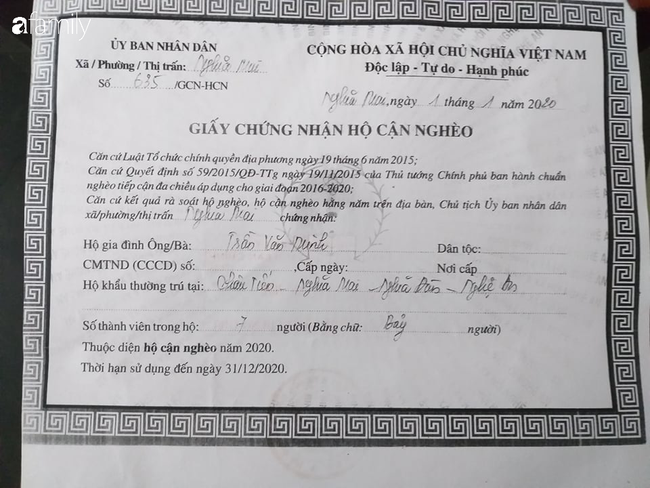 afamily
ỦY BAN NHÂN DÂN
Xã / Phường / Thị trấn: Nghĩa Mai
Số 635 /GCN-HCN
CỘNG HÒA XÃ HỘI CHỦ NGHĨA VIỆT NAM
Độc lập - Tự do - Hạnh phúc
Nghĩa Mai, ngày 1 tháng 1 năm 2020
GIẤY CHỨNG NHẬN HỘ CẬN NGHÈO
Căn cứ Luật Tổ chức chính quyền địa phương ngày 19 tháng 6 năm 2015;
Căn cứ Quyết định số 59/2015/QĐ-TTg ngày 19/11/2015 của Thủ tướng Chính phủ ban hành chuẩn
nghèo tiếp cận đa chiều áp dụng cho giai đoạn 2016-2020;
Căn cứ kết quả rà soát hộ nghèo, hộ cận nghèo hằng năm trên địa bàn, Chủ tịch Ủy ban nhân dân
xã/phường/thị trấn Nghĩa Mai chứng nhận:
Hộ gia đình Ông/Bà: Trần Văn Dân tộc:
CMTND (CCCD) số: ,Cấp ngày: Nơi cấp
Hộ khẩu thường trú tại: Nghĩa Mai - Nghĩa Đàn - Nghệ An
Số thành viên trong hộ: 7 người (Bằng chữ: Bảy người)
Thuộc diện hộ cận nghèo năm 2020.
Thời hạn sử dụng đến ngày 31/12/2020.